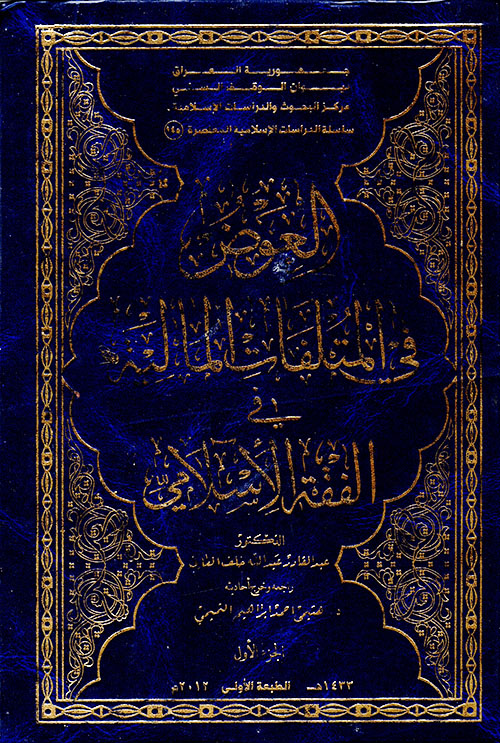 جمهورية العراق
ديوان الوقف السني
مركز البحوث والدراسات الإسلامية
سلسلة الدراسات الإسلامية المعاصرة (١٤٥)
العوض
في المتلفات المالية
في
الفقه الإسلامي
الدكتور
عبدالقادر عبدالله خلف
راجعه وخرج أحاديثه
د. احمد ابراهيم النعيمي
الجزء الأول
١٤٣٣هـ الطبعة الأولى ٢٠١٢م